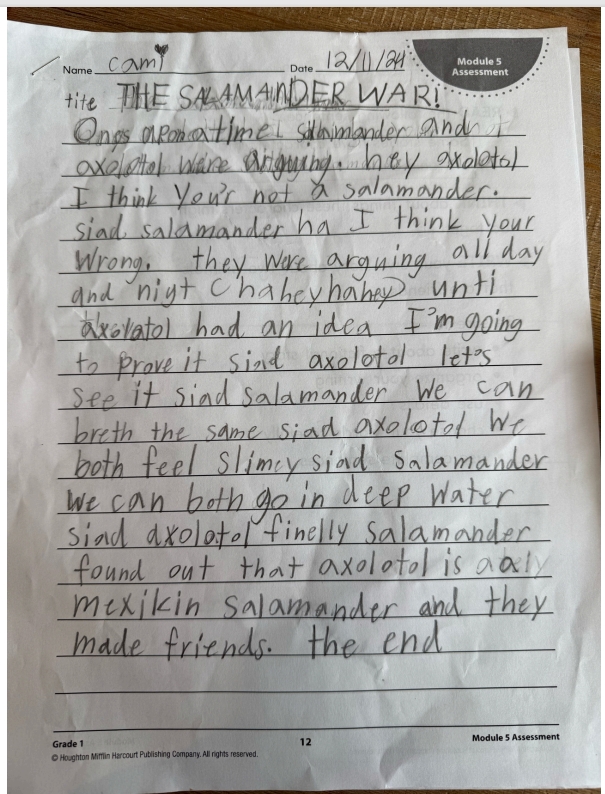 Name cami
Date 12/11/24
Module 5
Assessment
tite THE SALAMANDER WAR!
Ons apon a time salamander and
axolotol were arguing. hey axolotol
I think You'r not a salamander.
siad salamander ha I think your
Wrong. they were arguing all day
and nigt (haheyhahey) unti
axolatol had an idea I'm going
to prove it siad axolotol let's
see it siad salamander We can
breth the same siad axolotol We
both feel slimey siad salamander
We can both go in deep water
siad axolotol finelly salamander
found out that axolotol is
mexikin salamander and they
made friends. the end
Grade 1
12
Module 5 Assessment
© Houghton Mifflin Harcourt Publishing Company. All rights reserved.